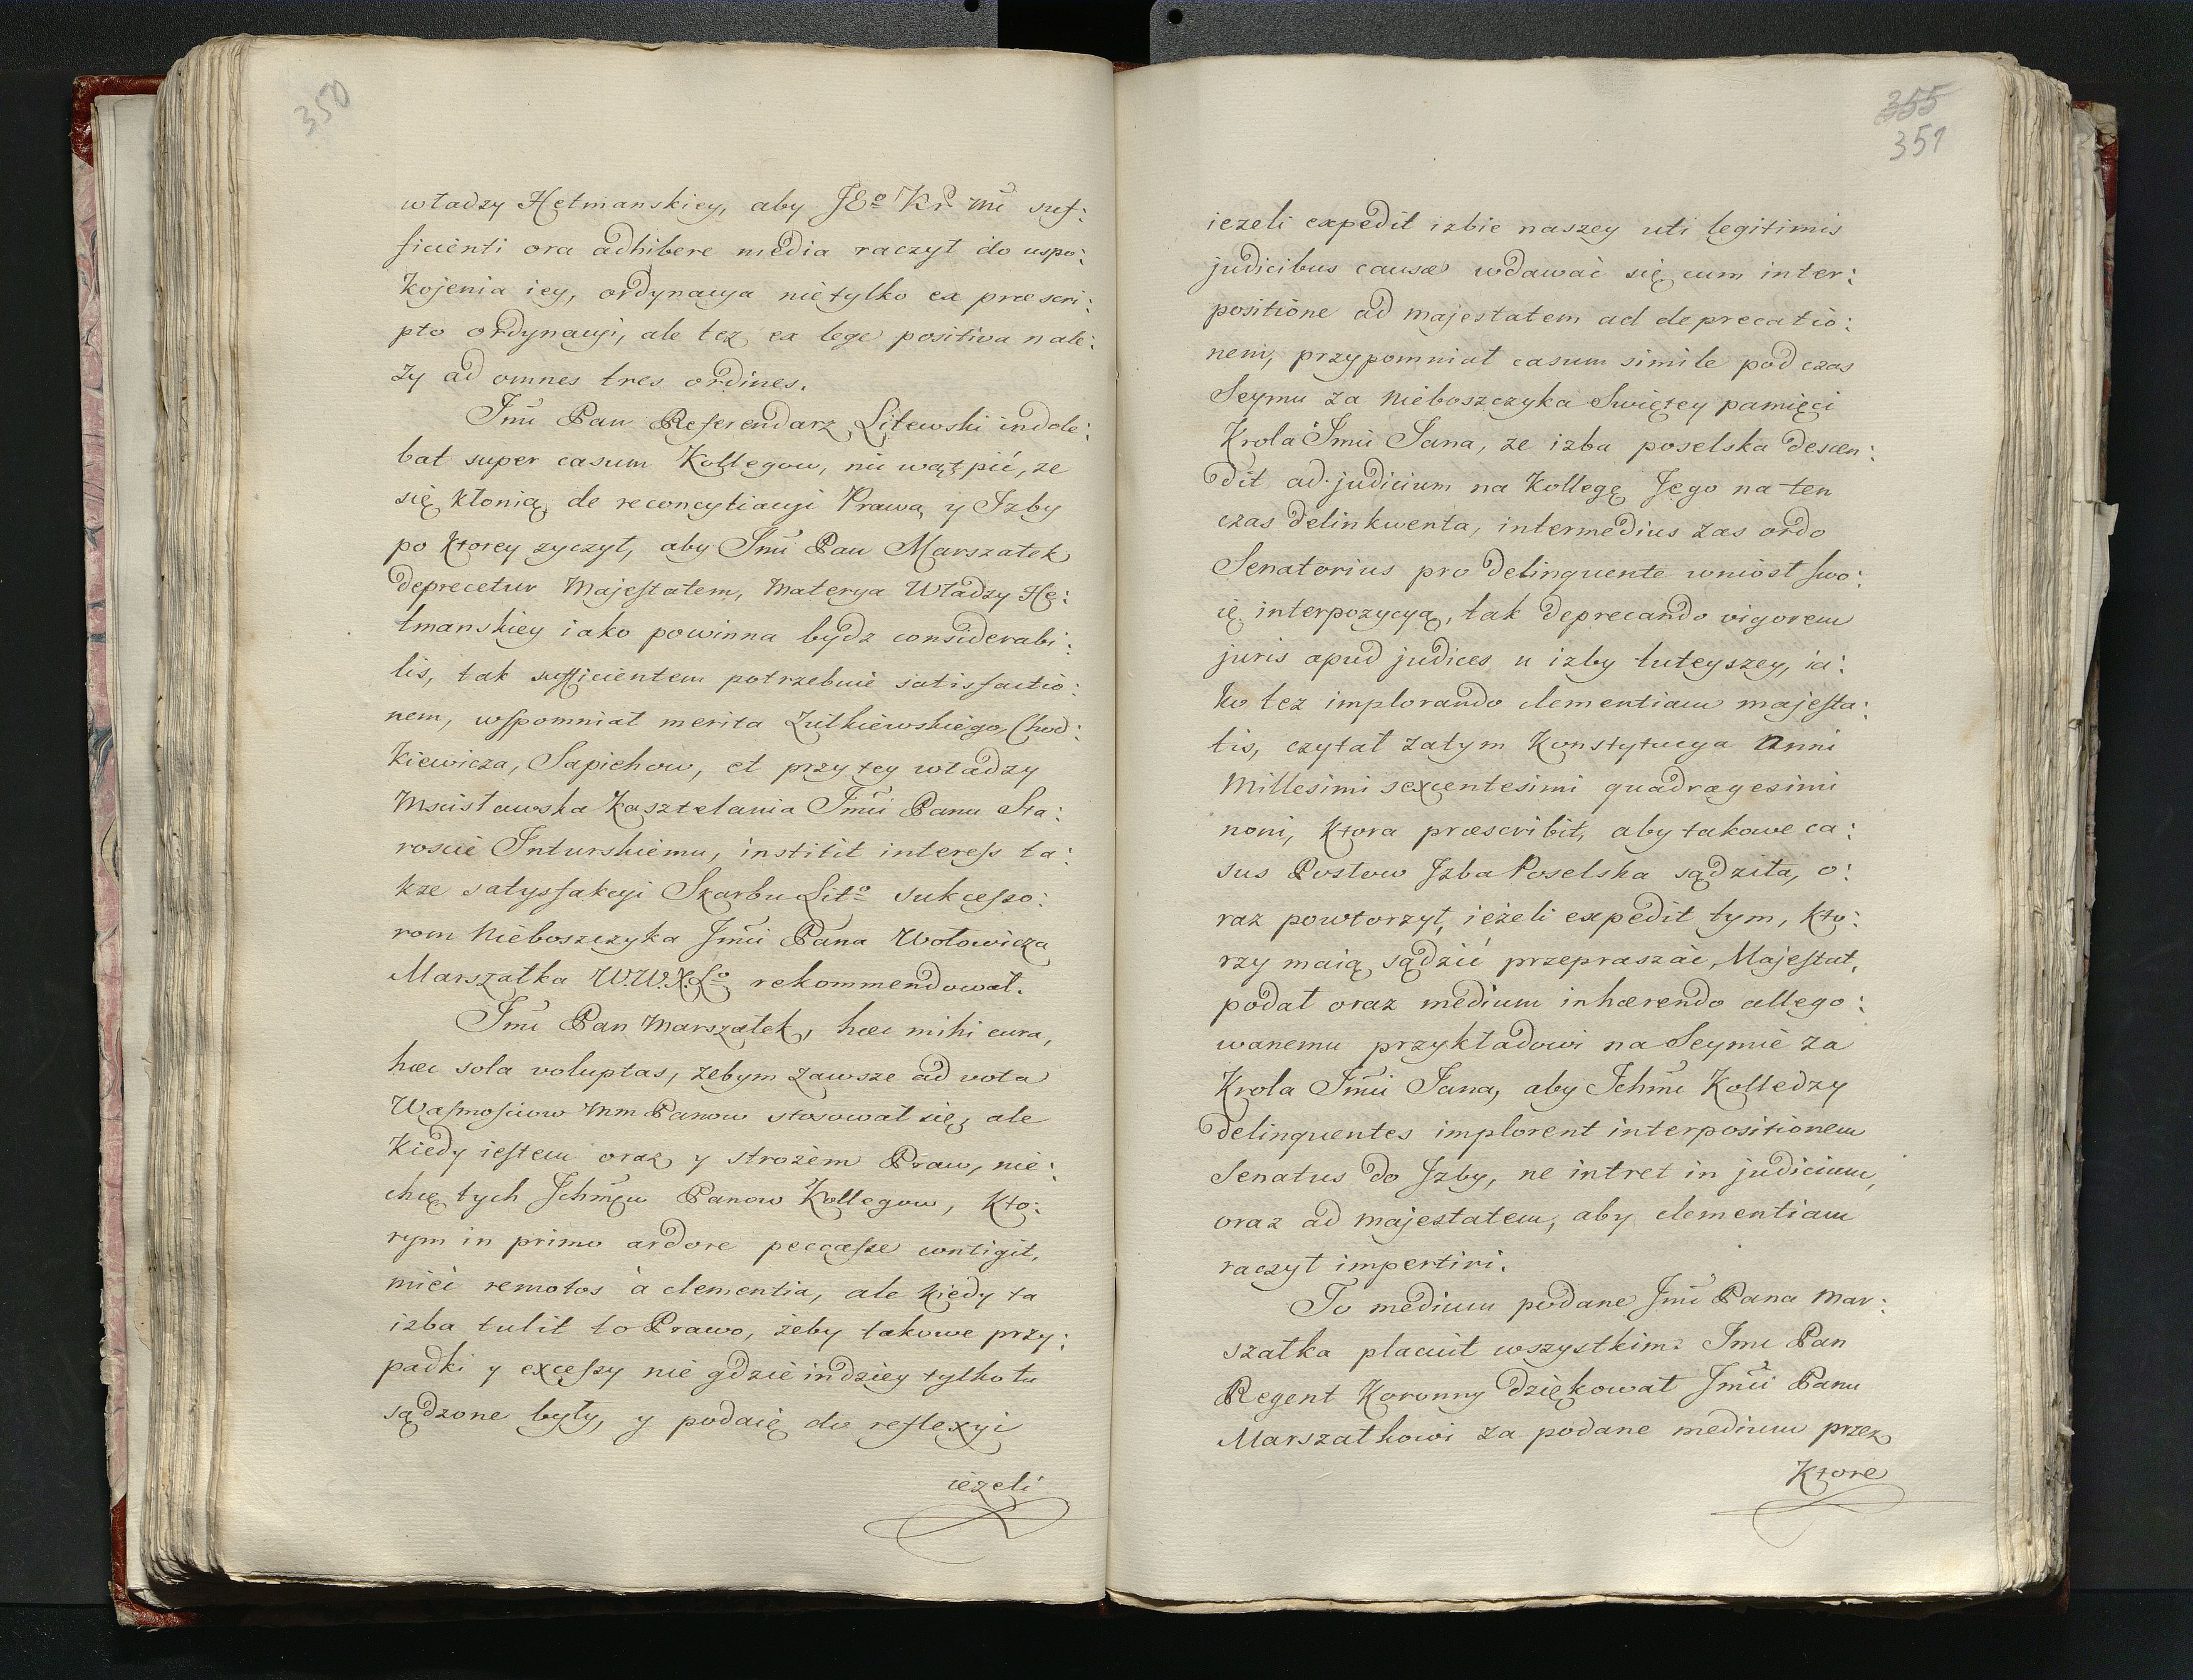 350
władzy Hetmanskiey, aby JEo Kr: Mć suf:
ficienti ora adhibere media raczył do uspo:
kojenia iey, ordynacya nietylko ex præscri:
pto ordynacyi, ale tez ex lege positiva nale:
zy ad omnes tres ordines.
Jmć Pan Referendarz Litewski indole:
bat super casum Kollegow, nie wątpić, ze
się kłonią de reconcyliacyi Prawa y Izby
po ktorey zyczył, aby Jmć Pan Marszałek
deprecetur Majestatem, Materya Władzy He:
tmanskiey iako powinna bydz considerabi:
lis, tak sufficientem potrzebuie satisfactio:
nem, wspomniał merita Zułkiewskiego, Chod:
kiewicza, Sapiehow, et przy tey władzy
Mscisławska Kasztelania Jmći Panu Sta:
roscie Inturskiemu, institit interess ta:
kze satysfakcyi Skarbu Lito sukcesso:
rom Nieboszczyka Jmći Pana Wołowicza
Marszałka W.W.X.Lo rekommendował.
Jmć Pan Marszałek, hæc mihi cura,
hæc sola voluptas, zebym zawsze ad vota
Wasmosciow Mm Panow stosował się, ale
kiedy iestem oraz y strozem Praw, nie:
chcę tych Jchmćiw Panow Kollegow, kto:
rym in primo ardore peccasse contigit,
mieć remotos à clementia, ale kiedy ta
izba tulit to Prawo, żeby takowe przy:
padki y excessy nie gdzie indziey tylko tu
sądzone były, y podaię do reflexyi
iezeli
355
351
iezeli expedit izbie naszey uti legitimis
judicibus causæ wdawać się cum inter:
positione ad majestatem ad deprecatio:
nem, przypomniał casum simile pod czas
Seymu za Nieboszczyka Swiętey pamięci
Krola Jmći Jana, ze izba poselska descen:
dit ad judicium na Kollegę Jego na ten
czas delinkwenta, intermedius zas ordo
Senatorius pro delinquente wniosł swo:
ię interpozycyą, tak deprecando vigorem
juris apud judices u izby tuteyszey, ia:
ko tez implorando clementiam majesta:
tis, czytał zatym Konstytucya Anni
Millesimi sexcentesimi quadragesimi
noni, ktora præscribit, aby takowe ca:
sus Posłow Izba Poselska sądziła, o:
raz powtorzył, ieżeli expedit tym, kto:
rzy maią sądzić przepraszać Majestat,
podał oraz medium inhærendo allego:
wanemu przykładowi na Seymie za
Krola Jmći Jana, aby Ichmć Kolledzy
delinquentes implorent interpositionem
Senatus do Izby, ne intret in judicium,
oraz ad majestatem, aby clementiam
raczył impertiri.
To medium podane Jmć Pana Mar:
szałka placuit wszystkim. Jmć Pan
Regent Koronny dziękował Jmći Panu
Marszałkowi za podane medium przez
Ktore